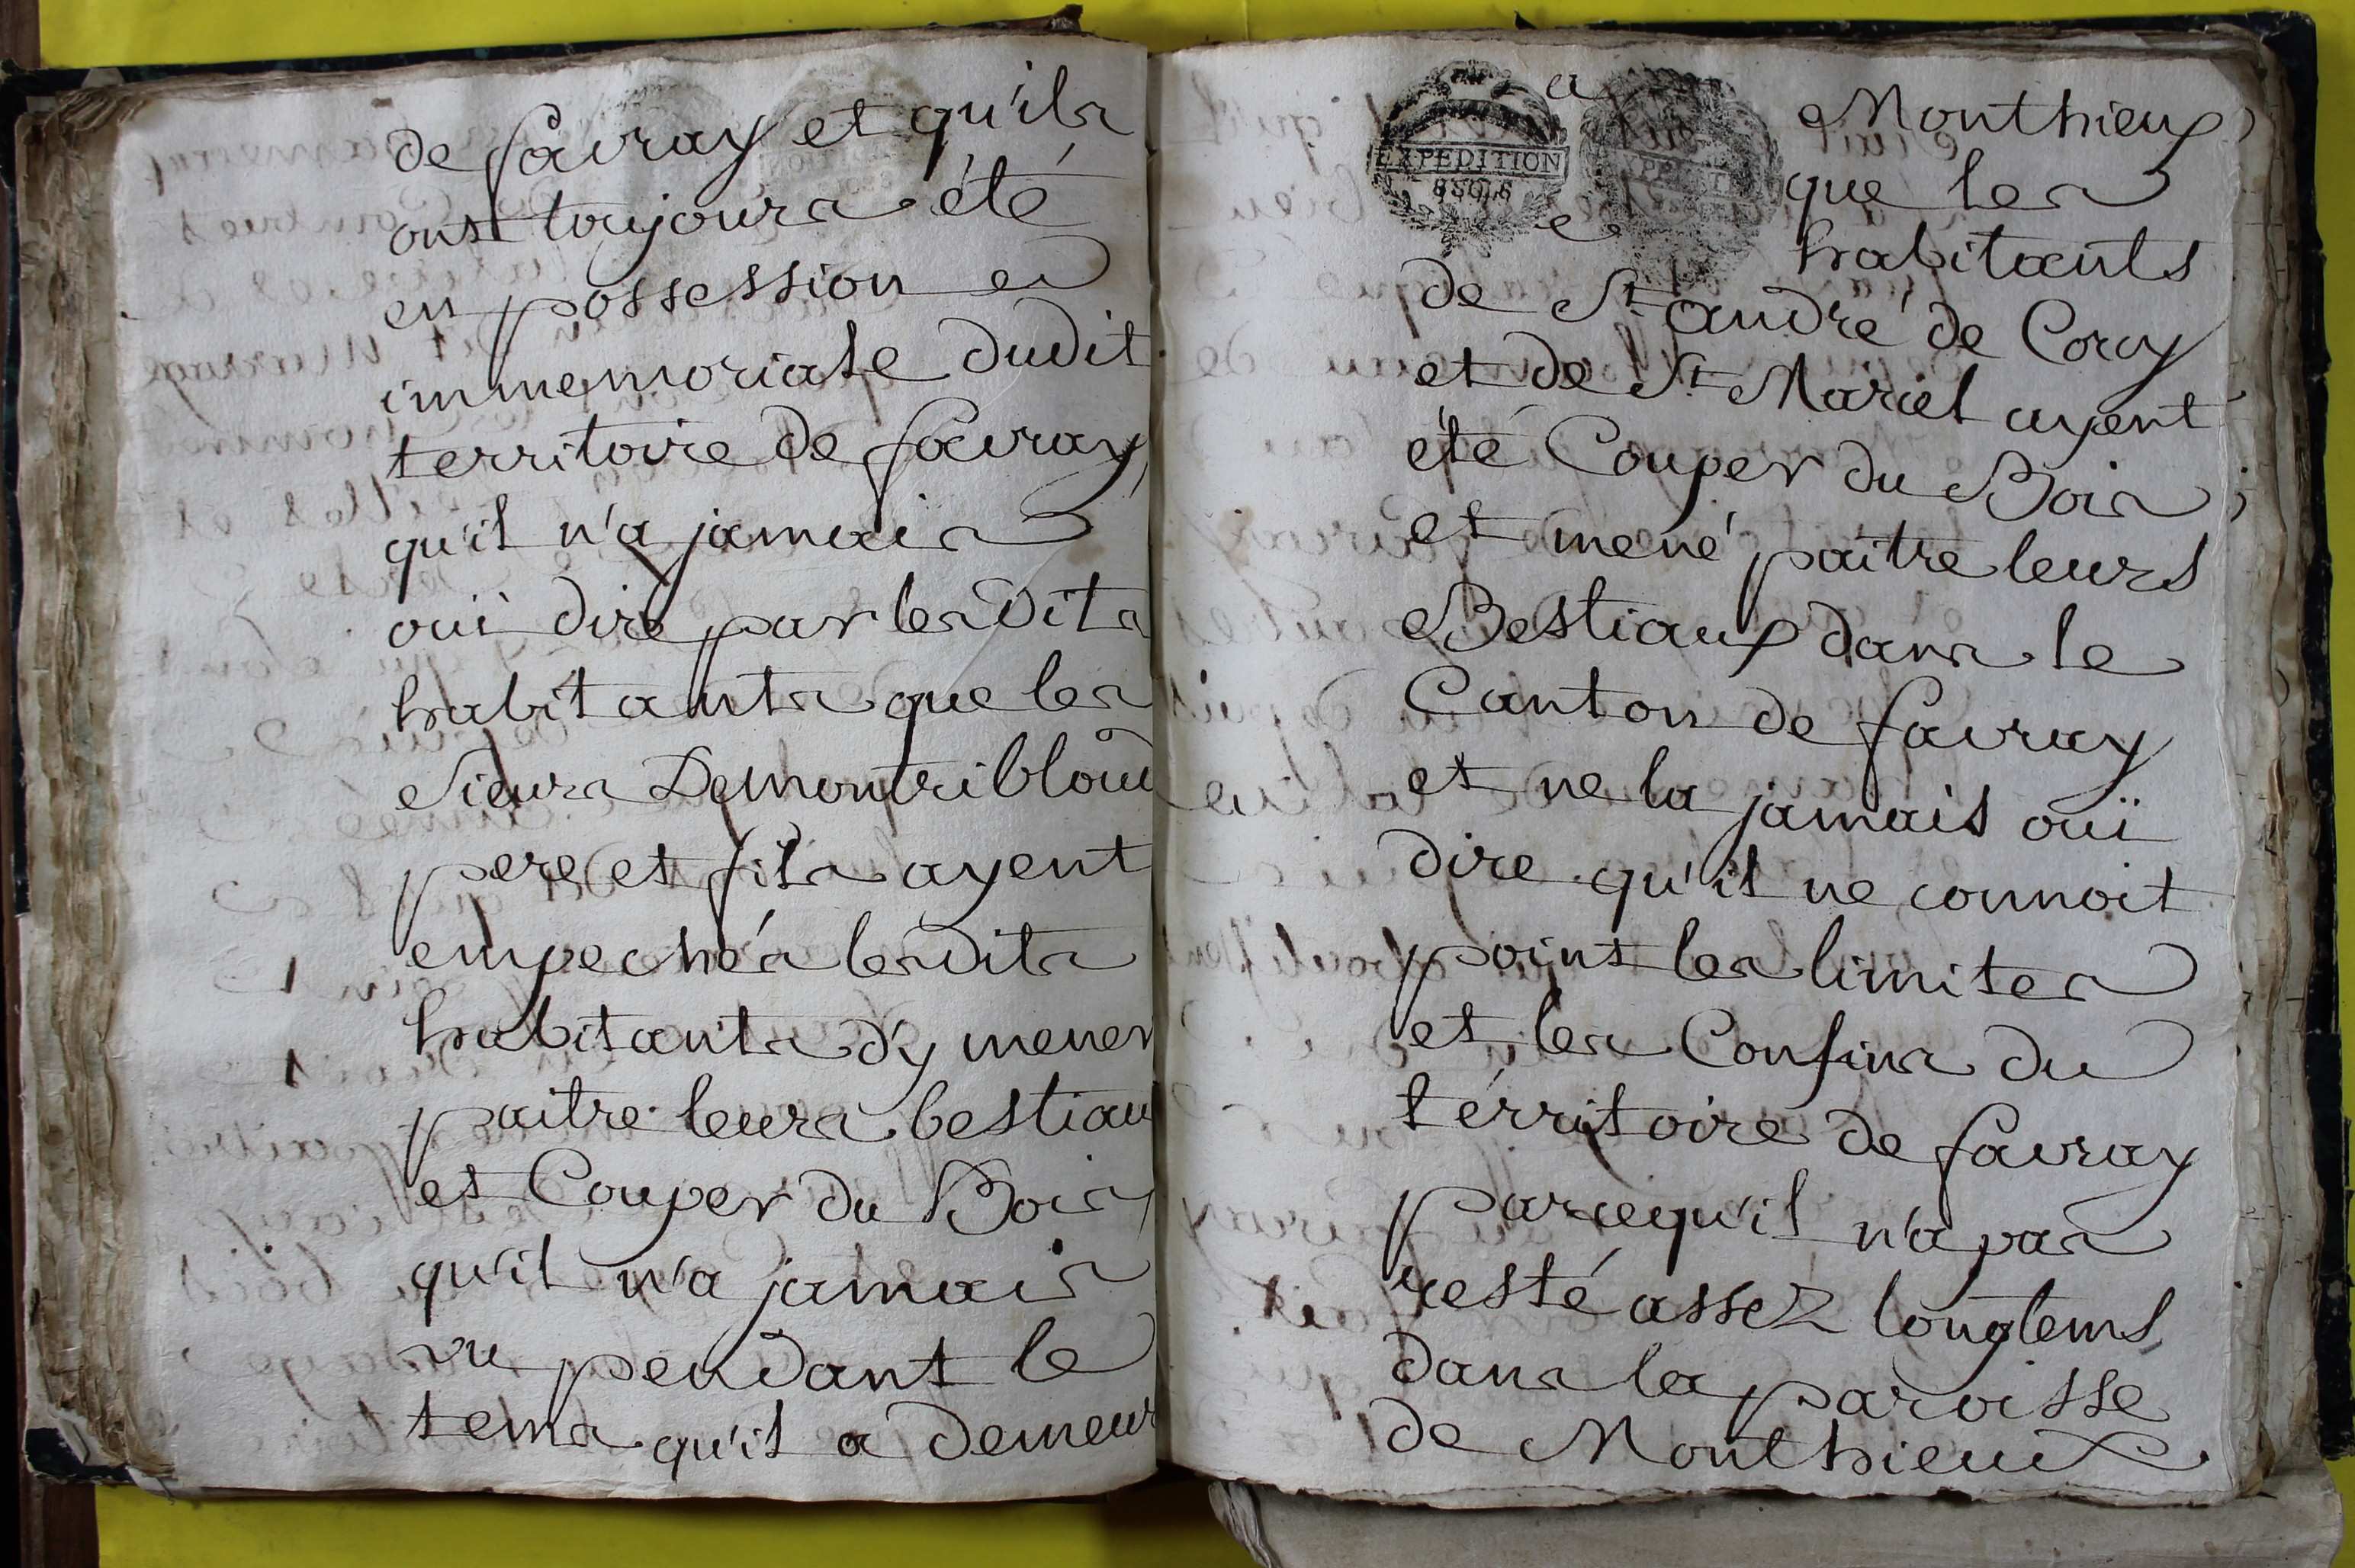 de favray et qu'ils
ont toujours été
en possession
immemoriale dudit
territoire de favray,
qu'il n'a jamais
oui dire par lesdits
habitants que les
Sieurs Demontribloud
pere et fils ayent
empechés lesdits
habitants d'y mener
paitre leurs bestiau
et Couper du Bois,
qu'il n'a jamais
vu pendant le
tems qu'il a demeur
a Monthieux,
EXPEDITION
8 SOLS
que les
habitants
de St andré de Corcy
et de St Marcel ayent
été Couper du Bois,
et mené paitre leurs
Bestiaux dans le
Canton de favray
et ne la jamais ouï
dire qu'il ne connoit
point les limites
et les Confins du
térritoire de favray
parcequ'il n'a pas
resté assez longtems
dans la paroisse
de Monthieux.